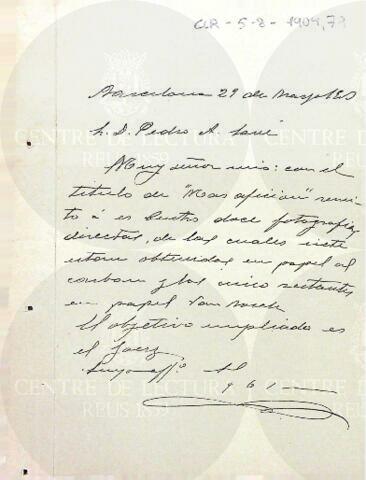 CLR-5-2-1904,79
Barcelona 29 de Mayo
S. D. Pedro A.
Muy señor mio: con el
titulo de "Mas aficion" remi-
to á es Centro doce fotografias
directas, de las cuales siete
estan obtenidas en papel al
carbon y las cinco restantes
en papel Van Bosch
El objetivo empleado es
el Goerz
CENTRE DE LECTURA
REUS 1859